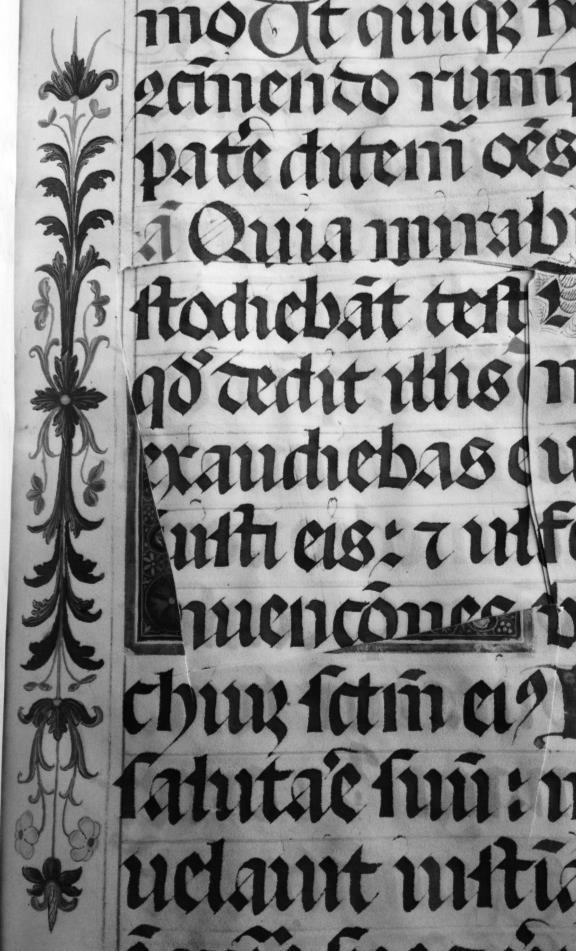 mo Ut quiqꝫ
ꝯcīnendo rump
pat̄e ditem̄ oēs
ā Quia mirab
stodiebāt test
qđ dedit illis
exaudiebas e u
fuisti eis: ⁊ ulse
nuencōnes
chuꝝ sctm̄ eiꝰ
salutar̄e suū:
uelauit iustīa